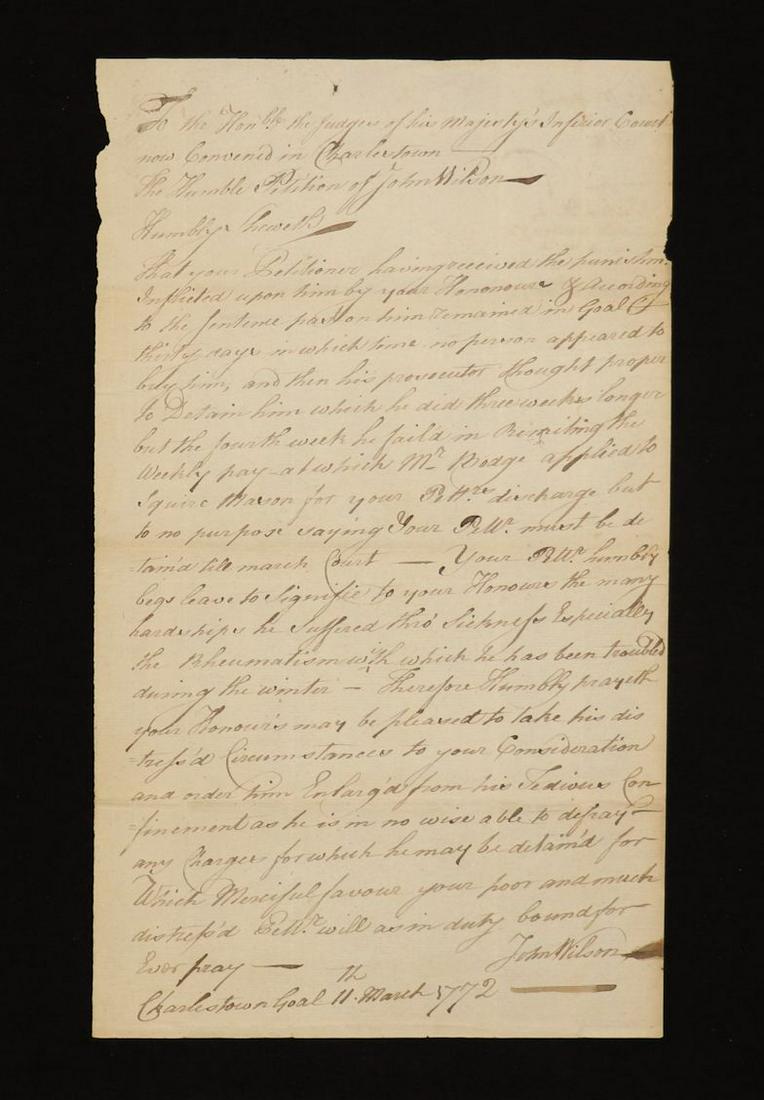 To the Honble the Judges of his Majesty's Inferior Court
now Convened in Charlestown
The Humble Petition of John Wilson
Humbly Sheweth
That your Petitioner having received the punishm
Inflicted upon him by your Honours & According
to the sentence past on him remained in Goal
thirty days in which time no person appeared to
buy him, and then his prosecutor thought proper
to Detain him which he did three weeks longer
but the fourth week he fail'd in Remiting the
Weekly pay at which Mr Rodge applied to
Squire Mason for your Pettrs discharge but
to no purpose saying Your Pettr. must be de
=tain'd till march Court — Your Pettr. humbly
begs leave to Signifie to your Honours the many
hardships he Suffered thro' Sickness Especially
the Rheumatism with which he has been troubled
during the winter — Therefore Humbly prayeth
your Honour's may be pleased to take his dis
=tress'd Circumstances to your Consideration
and order him Enlarg'd from his Tedious Con
=finement as he is in no wise able to defray
any Charges for which he may be detain'd for
Which Merciful favour your poor and much
distress'd Pettr. will as in duty bound for
Ever pray — John Wilson
Charlestown Goal 11th March 1772